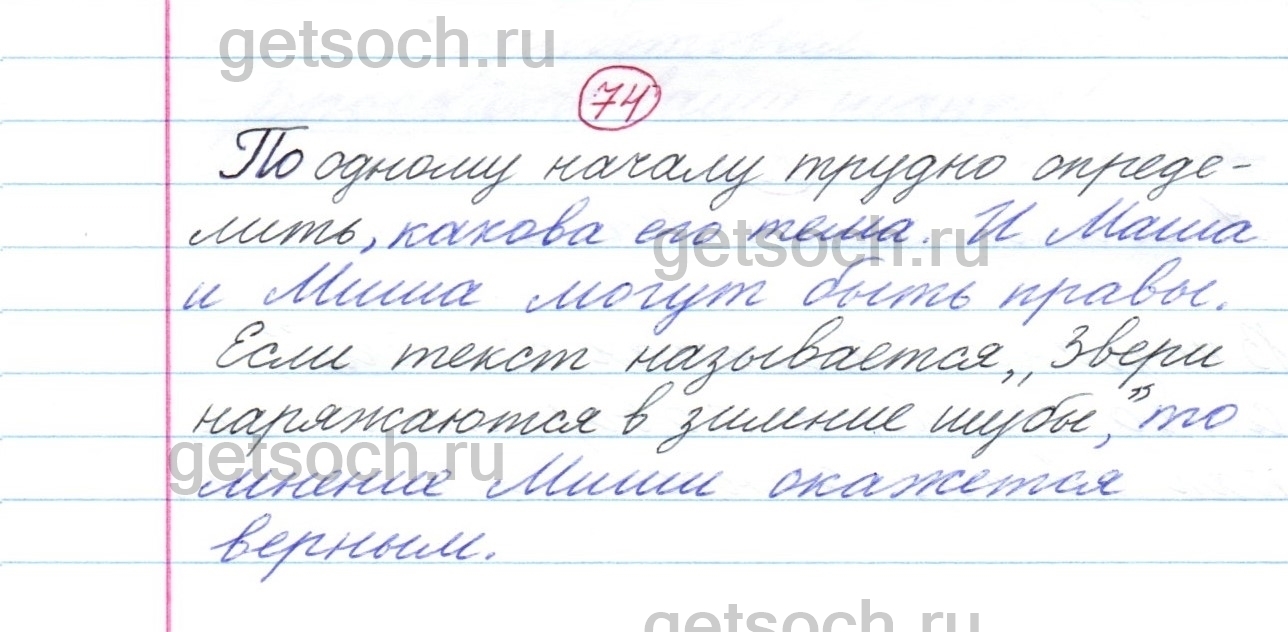 getsoch.ru
74
По одному началу трудно опреде-
лить, какова его тема. И Маша
getsoch.ru
и Миша могут быть правы.
Если текст называется „Звери
наряжаются в зимние шубы”, то
getsoch.ru
мнение Миши окажется
верным.
getsoch.ru